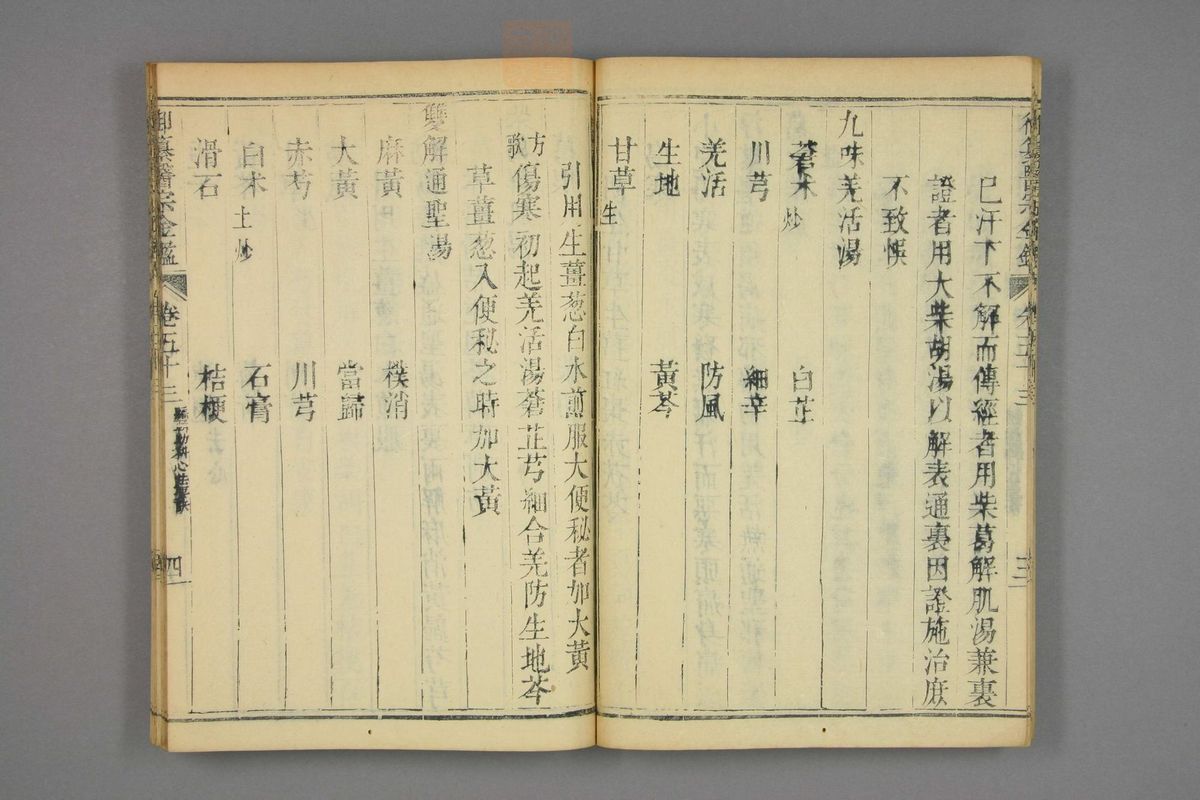 巳汗下不解而傳經者用柴葛解肌湯兼裏
證者用大柴胡湯以解表通裏因證施治庶
不致悞
九味羌活湯
蒼术炒 白芷
川芎 細辛
羌活 防風
生地 黃芩
甘草生
引用生薑葱白水煎服大便秘者加大黃
方歌 傷寒初起羌活湯蒼芷芎細合羌防生地芩
草薑葱入便秘之時加大黃
雙解通聖湯
麻黃 樸消
大黃 當歸
赤芍 川芎
白术土炒 石膏
滑石 桔梗
御纂醫宗金鑑 卷五十三 四